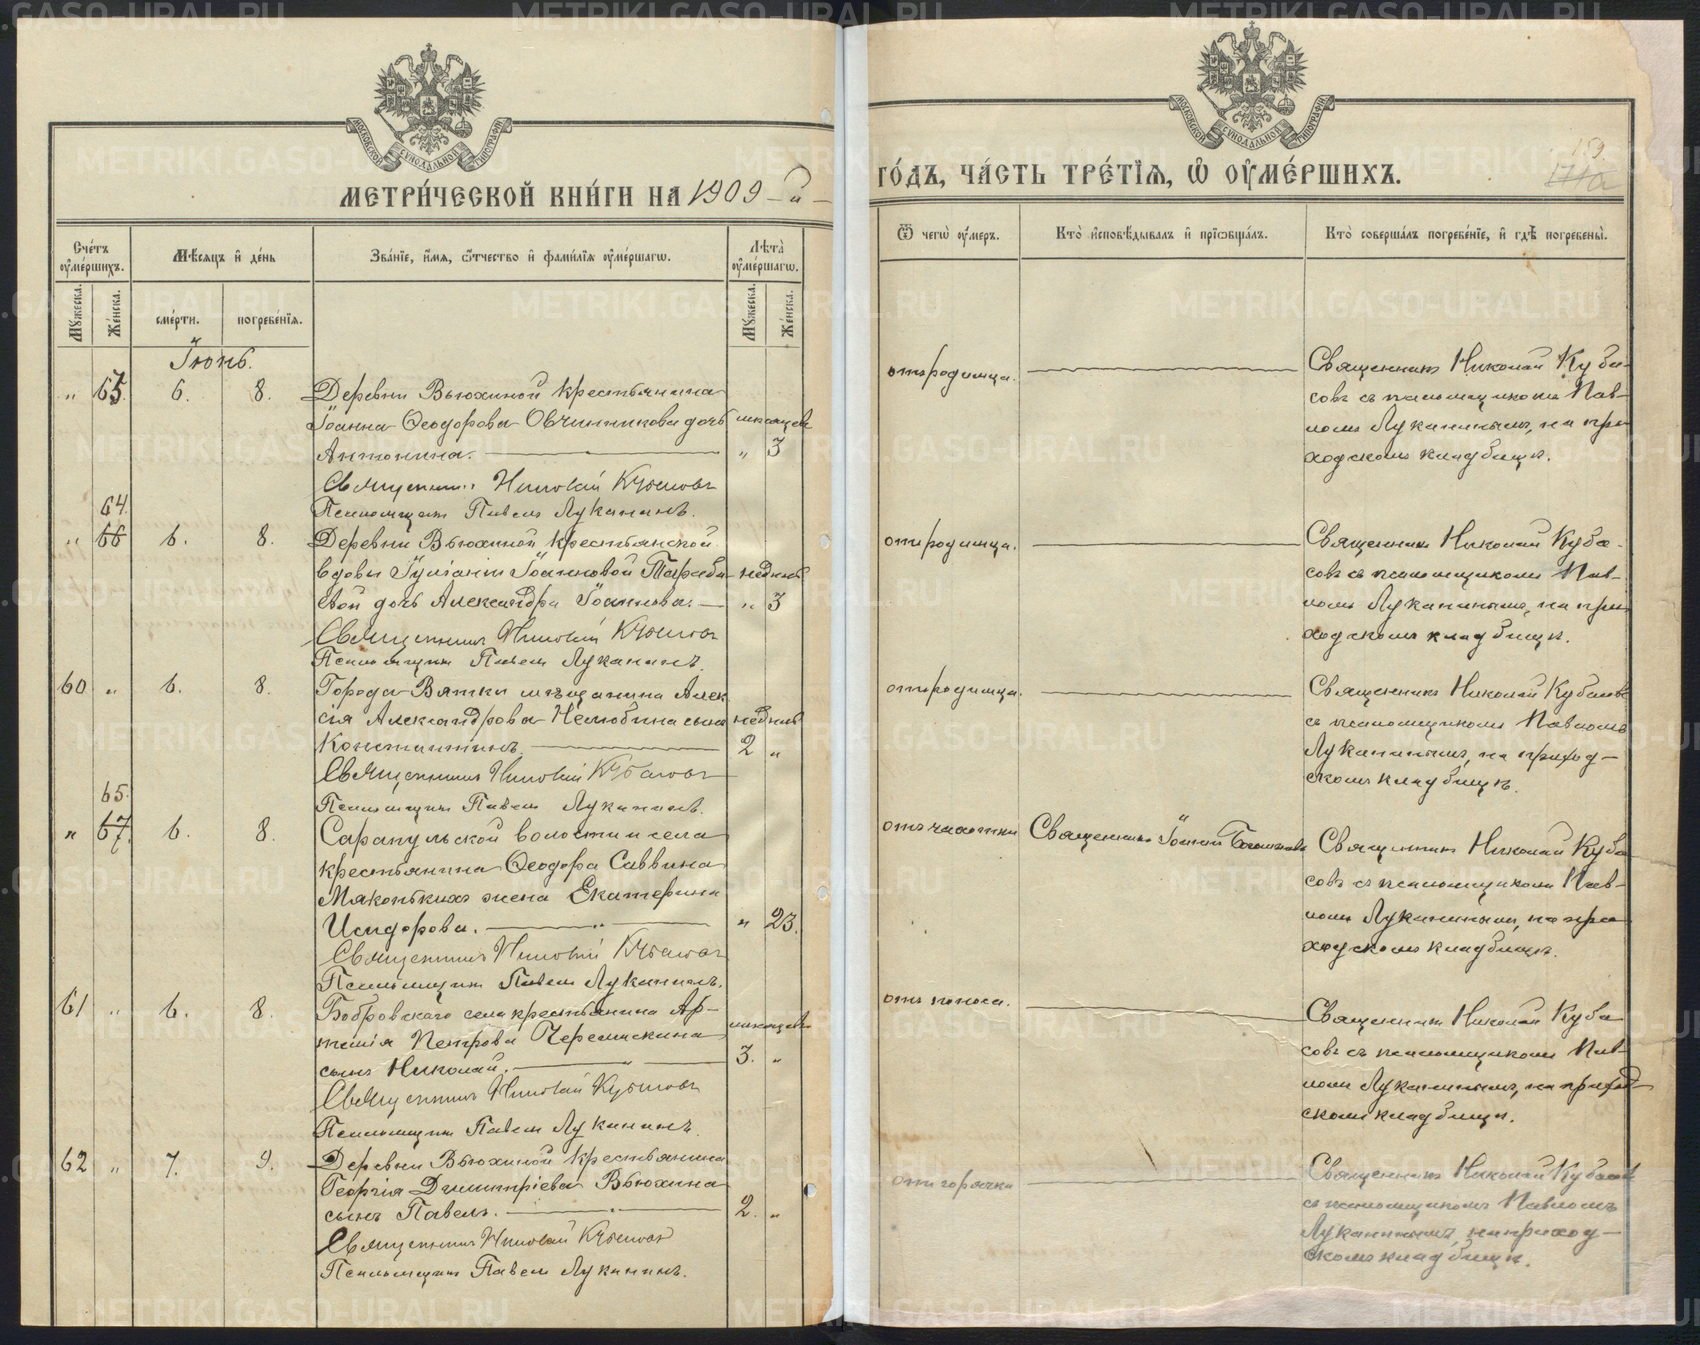 МЕТРИ́ЧЕСКОЙ КНИ́ГИ НА 1909-й-
ГО́ДЪ, ЧА́СТЬ ТРЕ́ТІѦ, Ѡ҆ ОУ҆МЕ́РШИХЪ.
159
171а
Сче́тъ оу҆ме́ршихъ.
Мѣ́сѧцъ и҆ де́нь
Зва́нїе, и҆́мѧ, ѻ҆́тчество и҆ фами́лїѧ оу҆ме́ршагѡ.
Лѣта̀ оу҆ме́ршагѡ.
Ѿ чегѡ̀ оу҆́меръ.
Кто̀ и҆сповѣ́дывалъ и҆ прїѡбща́лъ.
Кто̀ соверша́лъ погребе́нїе, и҆ гдѣ̀ погребены̀.
Мꙋ́жеска.
Же́нска.
сме́рти.
погребе́нїѧ.
Мꙋ́жеска.
Же́нска.
Іюнь.
" 63. 6. 8. Деревни Вьюхиной крестьянина
Іоанна Ѳеодорова Овчинникова дочь мѣсяцевъ
Антонина. " 3
Священникъ Николай Кубасовъ
Псаломщикъ Павелъ Луканинъ.
отъ родимца.
Священникъ Николай Куба-
совъ съ псаломщикомъ Пав-
ломъ Луканинымъ, на при
ходскомъ кладбищѣ.
64.
" 66 6. 8. Деревни Вьюхиной крестьянской
вдовы Іуліаніи Іоанновой Тараба- недѣль
евой дочь Александра Іоаннова. " 3
Священникъ Николай Кубасовъ
Псаломщикъ Павелъ Луканинъ.
отъ родимца.
Священникъ Николай Куба-
совъ съ псаломщикомъ Пав-
ломъ Луканинымъ, на при
ходскомъ кладбищѣ.
60 " 6. 8. Города Вятки мѣщанина Алек
сія Александрова Нелюбина сынъ недѣль
Константинъ. 2 "
Священникъ Николай Кубасовъ
Псаломщикъ Павелъ Луканинъ.
отъ родимца.
Священникъ Николай Кубасовъ
съ псаломщикомъ Павломъ
Луканинымъ, на приход-
скомъ кладбищѣ.
65.
" 67. 6. 8. Сарапульской волости и села
крестьянина Ѳеодора Саввина
Мяконькихъ жена Екатерина
Исидорова. " 23.
Священникъ Николай Кубасовъ
Псаломщикъ Павелъ Луканинъ.
отъ чахотки
Священникъ Іоаннъ
Священникъ Николай Куба
совъ съ псаломщикомъ Пав-
ломъ Луканинымъ, на при
ходскомъ кладбищѣ.
61 " 6. 8. Бобровскаго села крестьянина Ар-
темія Петрова Черемискина мѣсяцевъ
сынъ Николай. 3. "
Священникъ Николай Кубасовъ
Псаломщикъ Павелъ Луканинъ.
отъ поноса.
Священникъ Николай Куба
совъ съ псаломщикомъ Пав-
ломъ Луканинымъ, на приход
скомъ кладбищѣ.
62 " 7. 9. Деревни Вьюхиной крестьянина
Георгія Димитріева Вьюхина
сынъ Павелъ. 2. "
Священникъ Николай Кубасовъ
Псаломщикъ Павелъ Луканинъ.
отъ горячки
Священникъ Николай Кубасовъ
съ псаломщикомъ Павломъ
Луканинымъ, на приход-
скомъ кладбищѣ.
METRIKI.GASO-URAL.RU